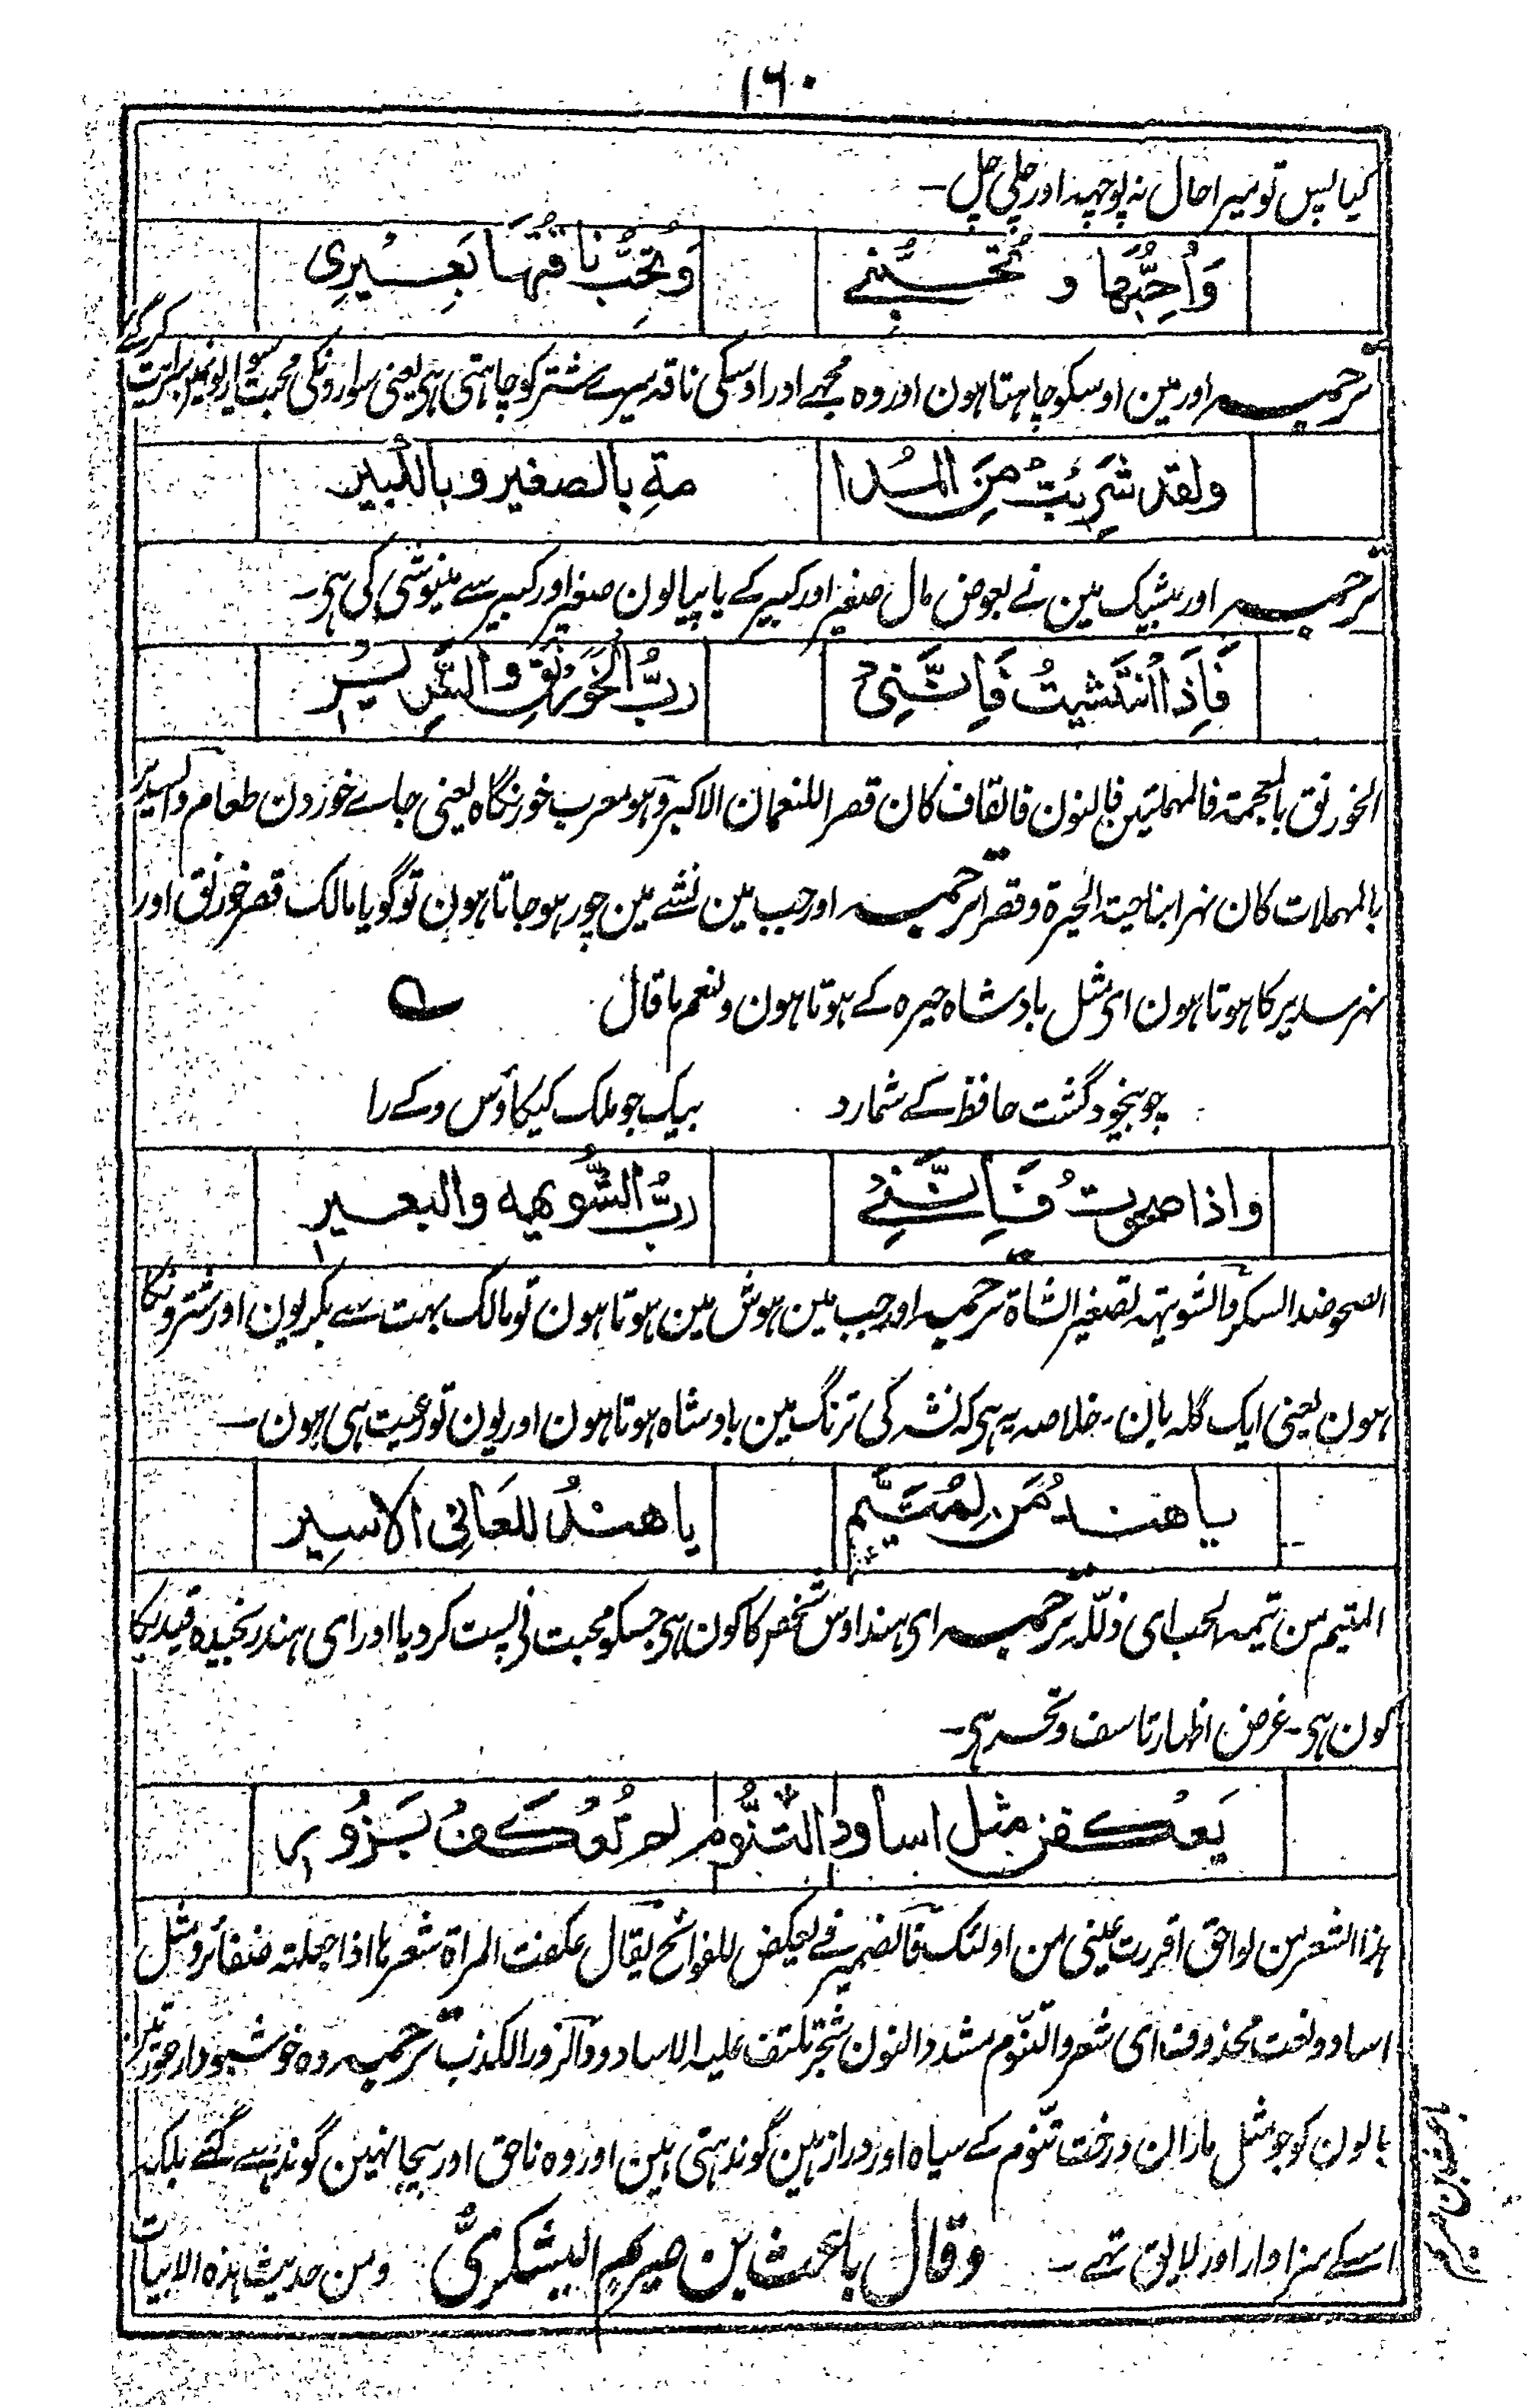 ۱۶۰
کیا پس تو میرا حال نہ پوچہہ اور چلی چل ۔
وَاُحِبُّهَا و تُحِبُّنِے وَتُحِبُّ نَاقَتُهَا بَعِيْرِى
ترجمہ اور مین اوسکو چاہتا ہون اور وہ مجہے اور اوسکی ناقہ میرے شتر کو چاہتی ہی یعنی سوارونکی محبت سواریونمین سرایت کر گئی
ولقد شَرِبْتُ مِنَ المُدا مةِ بالصغير و بالكبير
ترجمہ اور بیشک مین نے بعوض مال صغیر اور کبیر کے یا پیالون صغیر اور کبیر سے مینوشی کی ہی ۔
فَاِذَا انْتَشَيتُ فَاِنَّنِىْ رَبُّ الخَوَرْنَقِ وَالسَّدِيرِ
الخورنق بالمعجمۃ فالمہملتین فالنون فالقاف کان قصرا للنعمان الاکبر وہو معرب خورنگاہ یعنی جاے خوردن طعام والسدیر
بالمہملات کان نہرا بناحیۃ الحیرۃ وقصرا ترجمہ اور جب مین نشے مین چور ہو جاتا ہون تو گویا مالک قصر خورنق اور
نہر سدیر کا ہوتا ہون ای مثل بادشاہ حیرہ کے ہوتا ہون ولنعم ما قال
چو بیخود گشت حافظ کے شمارد بیک جو ملک کیکاؤس و کے را
واذا صحوتُ فَاِنَّنِىْ رَبُّ الشُّويهه والبعير
الصحو ضد السکر والشویہۃ تصغیر الشاۃ ترجمہ اور جب مین ہوش مین ہوتا ہون تو مالک بہت سے بکریون اور شترونکا
ہون یعنی ایک گلہ بان ۔ خلاصہ یہ ہی کہ نشہ کی ترنگ مین بادشاہ ہوتا ہون اور یون تو رعیت ہی ہون ۔
يا هندُ مَن لِمُتَيَّمٍ يا هندُ للعَانِى الاسِير
المتیم من تیمہ الحب ای ذللہ ترجمہ ای ہند اوس شخص کا کون ہی جسکو محبت نی پست کر دیا اور ای ہند رنجیدہ قیدیکا
کون ہی ۔ غرض اظہار تاسف وتحسر ہی ۔
يَعْكفن مثل اساود التَّنُّوم لم تُعْكَفْ بِزُورِ
ہذا الشعر من لواحق اقررت عینی من اولئک فالضمیر فے یعکفن للفوائح یقال عکفت المراۃ شعرہا اذا جعلتہ ضفائر ومثل
اساود نعت محذوف ای شعر والتنوم مشدد النون شجر تلتف علیہ الاساود والزور الکذب ترجمہ وہ خوشبودار عورتین
بالون کو جو مثل ماران درخت تنوم کے سیاہ اور دراز ہین گوندہتی ہین اور وہ ناحق اور بیجا نہین گوندہے گئے بلکہ
اسکے سزاوار اور لایق تہے ۔ وقال باعث بن صریم الیشکریُّ ومن حدیث ہذہ الابیات
باعث بن صریم